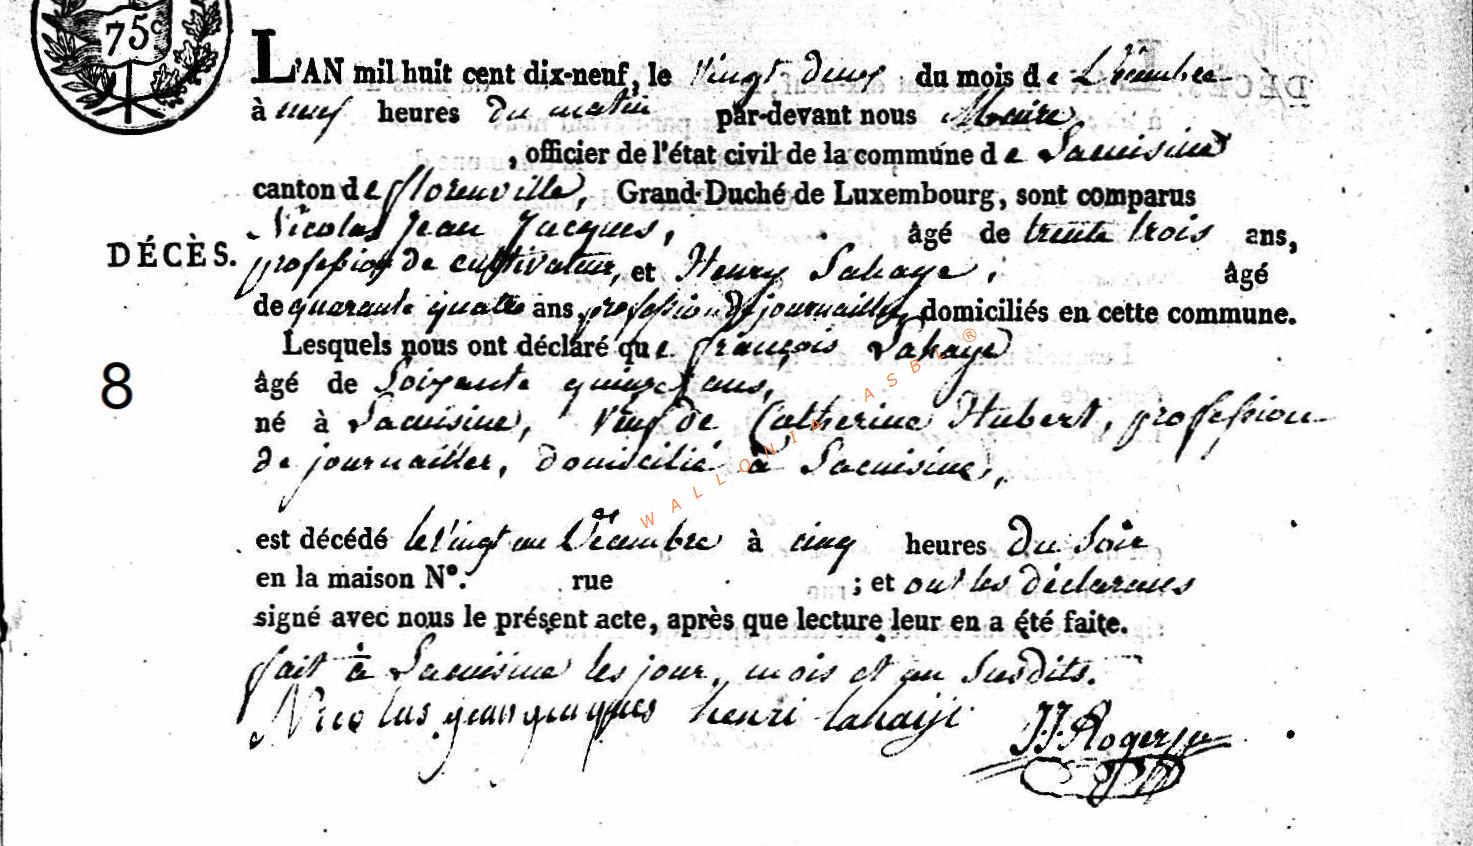 75c
L'AN mil huit cent dix-neuf, le vingt deux du mois de Décembre
à neuf heures du matin par-devant nous Maire
, officier de l'état civil de la commune de Lacuisine
canton de florenville, Grand-Duché de Luxembourg, sont comparus
Nicolas Jean Jacques, âgé de trente trois ans,
DÉCÈS.
profession de cultivateur, et Henry Lahaye, âgé
de quarante quatre ans, profession de journailler, domiciliés en cette commune.
Lesquels nous ont déclaré que françois Lahaye
8
âgé de Soixante quinze ans,
né à Lacuisine, veuf de Catherine Hubert, profession
de journailler, domicilié à Lacuisine,
est décédé le vingt un Décembre à cinq heures du soir
en la maison N°. rue ; et ont les déclarans
signé avec nous le présent acte, après que lecture leur en a été faite.
fait à Lacuisine les jour, mois et an susdits.
Nicolas jean jacques henri lahaije J.J. Roger
WALLONIA ASBL ®